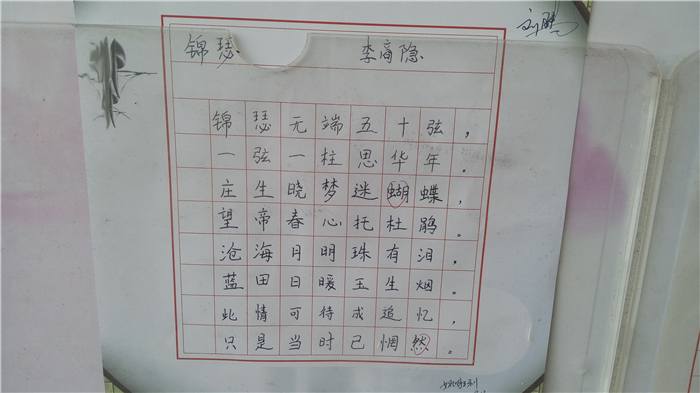 锦瑟 李商隐
锦瑟无端五十弦，
一弦一柱思华年。
庄生晓梦迷蝴蝶，
望帝春心托杜鹃。
沧海月明珠有泪，
蓝田日暖玉生烟。
此情可待成追忆，
只是当时已惘然。